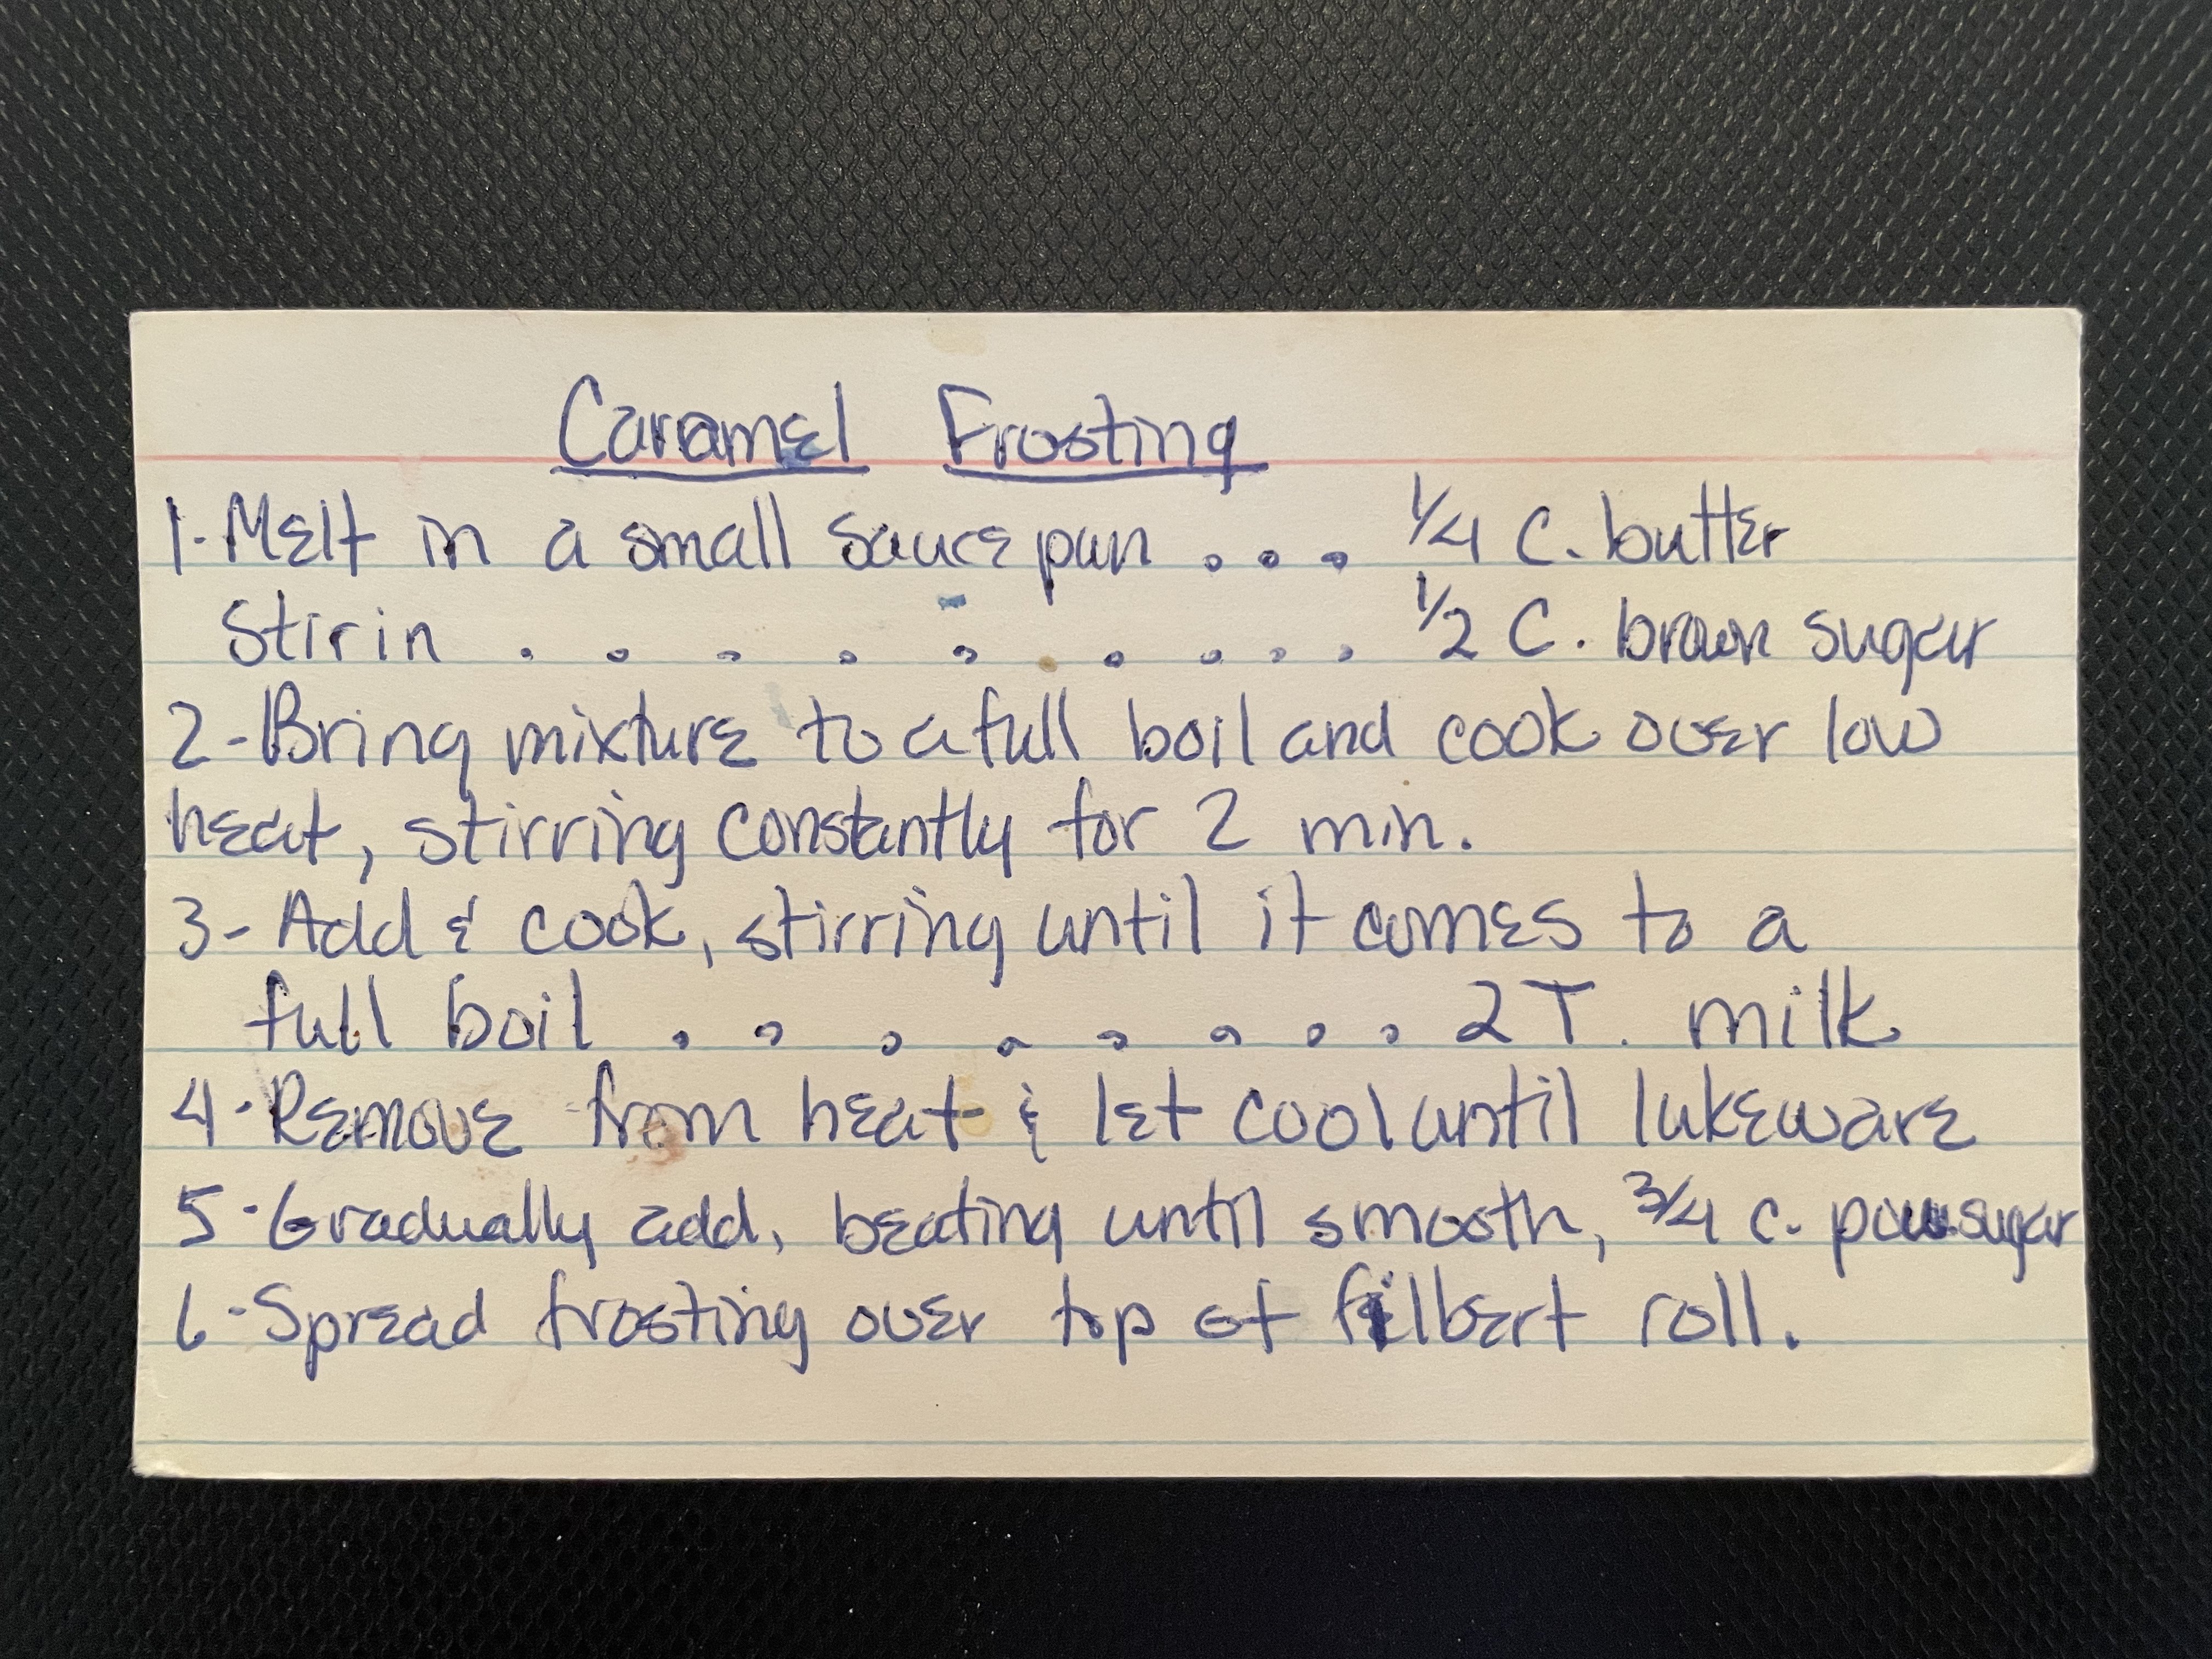 Caramel Frosting
1-Melt in a small saucepan . . . 1/4 c. butter
Stir in . . . . . . . . . . 1/2 C. brown sugar
2-Bring mixture to a full boil and cook over low
heat, stirring constantly for 2 min.
3- Add & cook, stirring until it comes to a
full boil . . . . . . . . 2 T. milk
4-Remove from heat & let cool until lukeware
5-Gradually add, beating until smooth, 3/4 c. pow.sugar
6-Spread frosting over top of filbert roll.